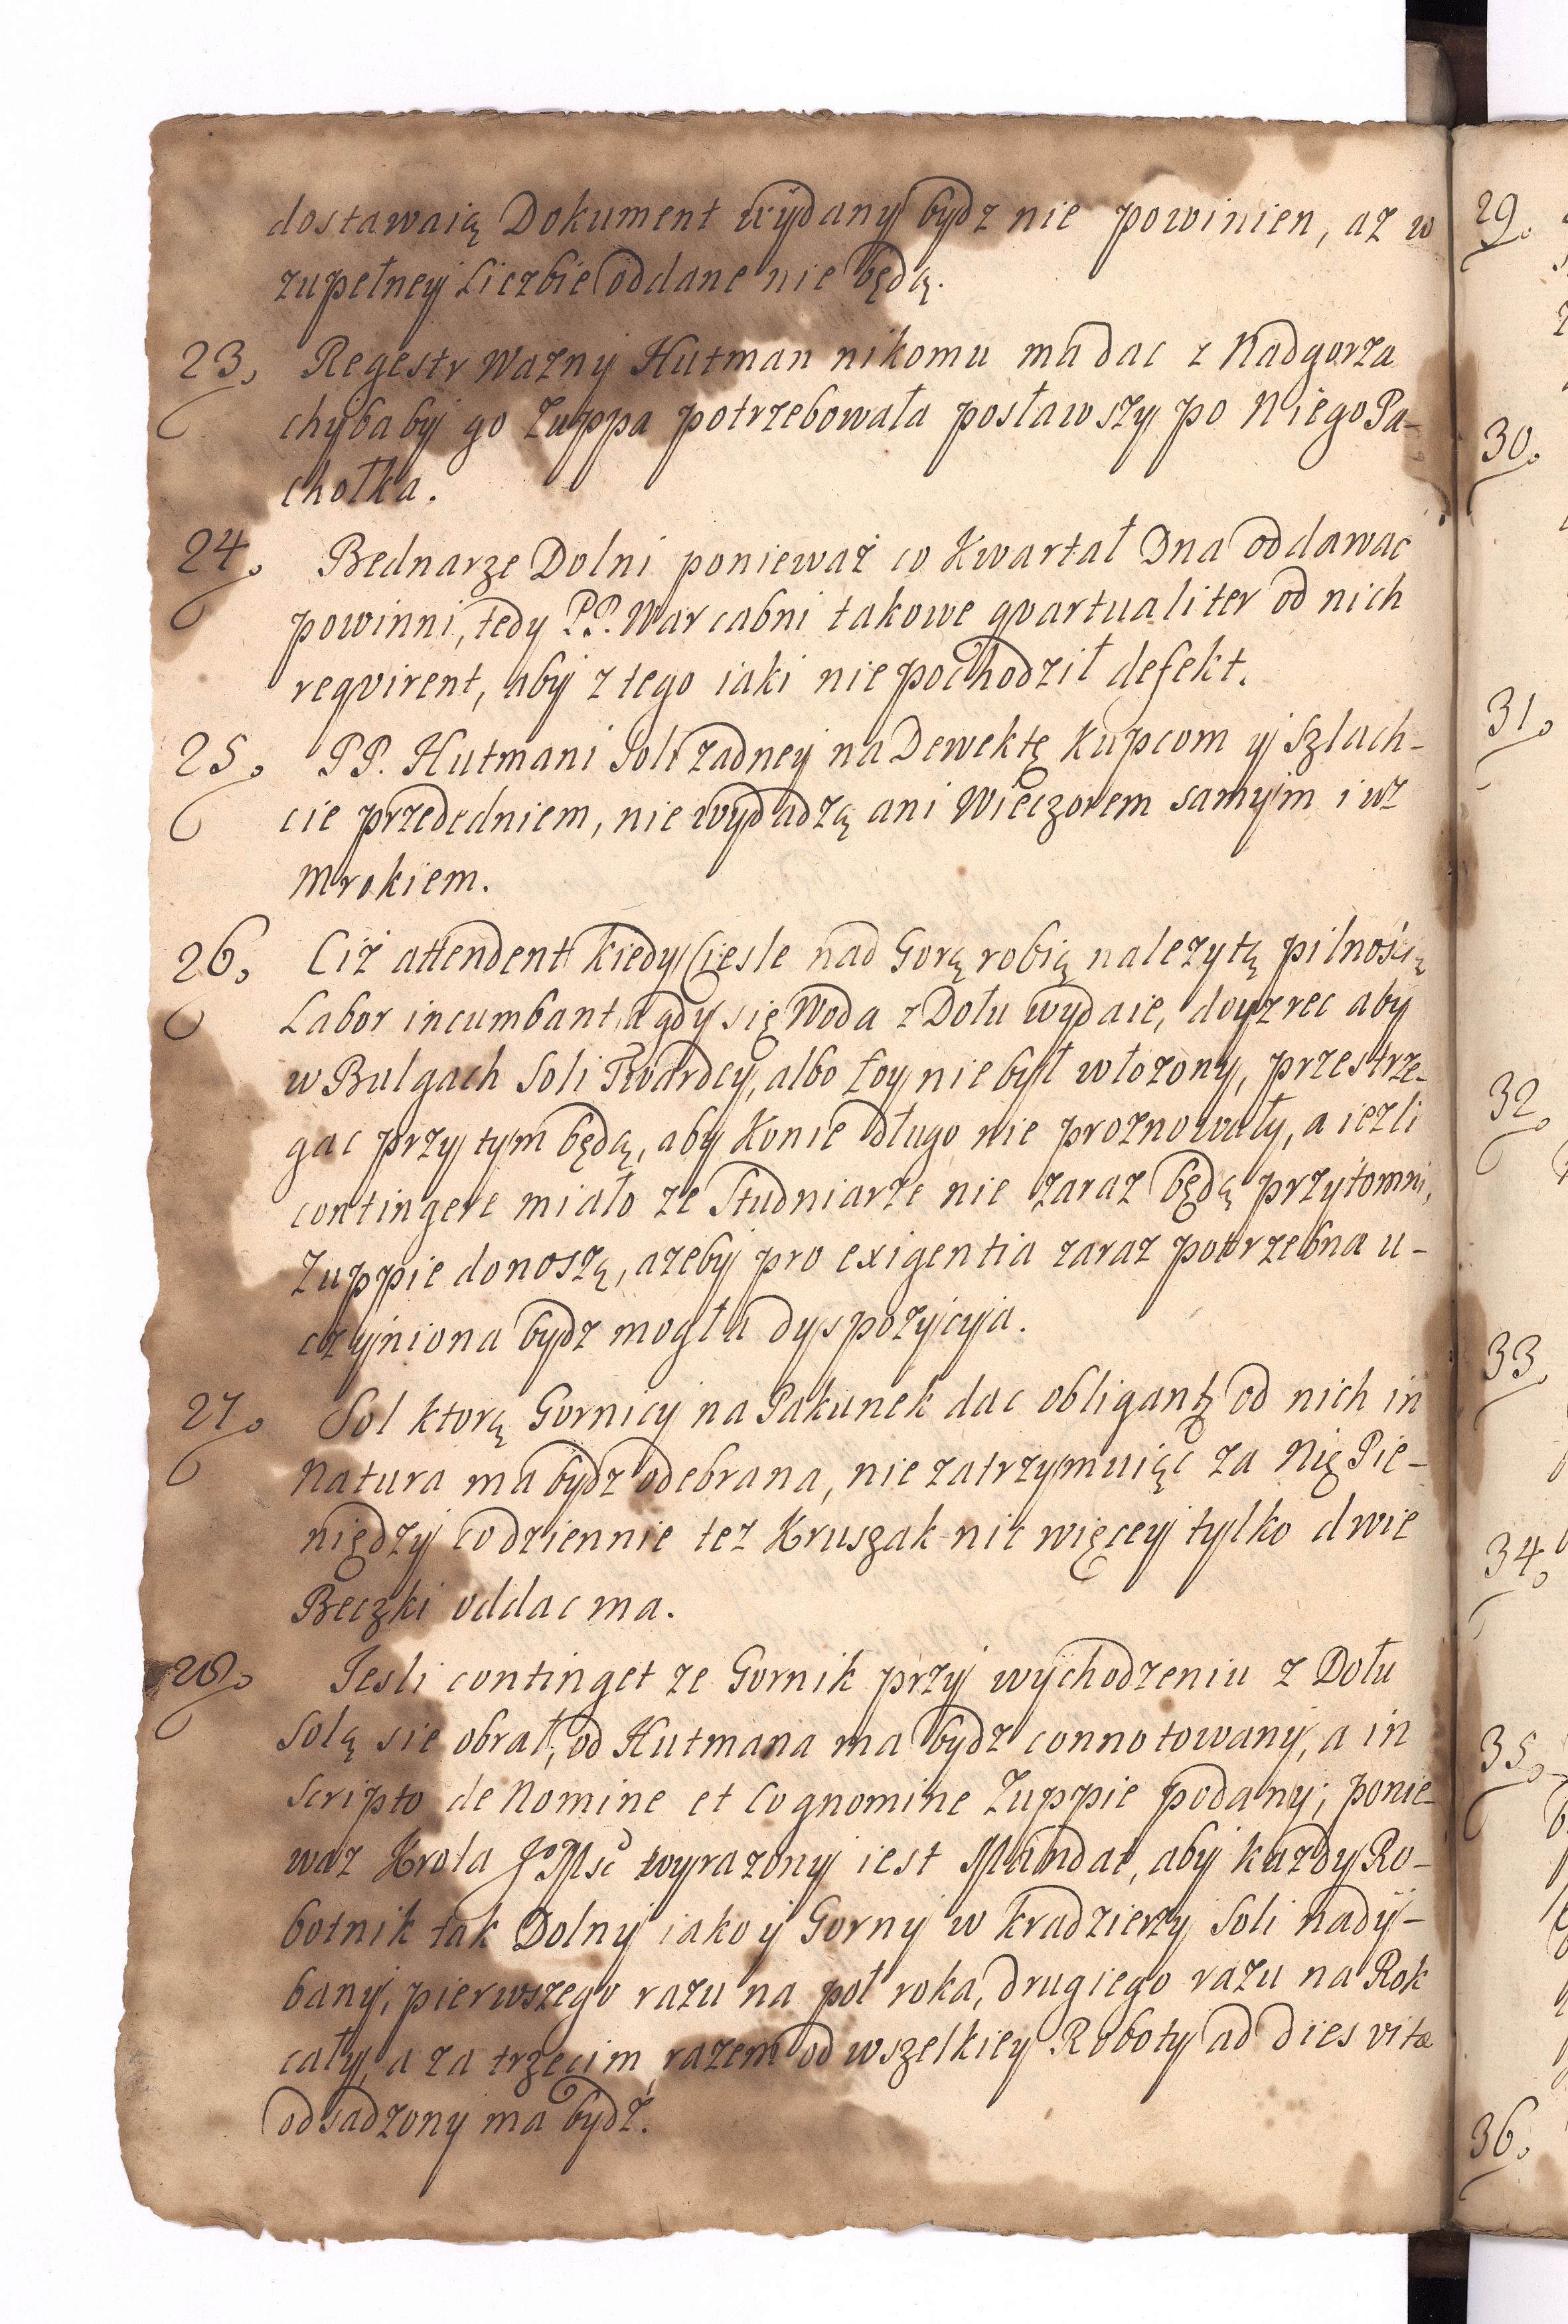 dostawaią Dokument wÿdany bydz nie powinien, az w
zupełney Liczbie oddane nie będą.
23. Regestr Wazny Hutman nikomu ma dac z Nadgorza
chybaby go Zuppa potrzebowała posławszy po Niego Pa-
chołka.
24. Bednarze Dolni ponieważ co Kwartał Dna oddawac
powinni, tedy P.P. Warcabni takowe qvartualiter od nich
reqvirent, aby z tego iaki nie pochodził defekt.
25. PP. Hutmani Soli żadney na Dewektę Kupcom y Szlach-
cie przededniem, nie wydadzą ani Wieczorem samym iuz
Mrokiem.
26. Ciż attendent kiedy Ciesle nad Gorą robią nalezytą pilnością
Labor incumbant, a gdy się Woda z Dołu wydaie, doyzrec aby
w Bulgach Soli Twardey, albo Łoy nie był włozony, przestrze-
gac przy tym będą, aby Konie długo nie proznowały, a iezli
contingere miało ze Studniarze nie zaraz będą przytomni,
Zuppie donoszą, azeby pro exigentia zaraz potrzebna u-
czyniona bydz mogła dyspozycyia.
27. Sol ktorą Gornicy na Pakunek dac obligantz od nich in
Natura ma bydz odebrana, nie zatrzymuiąc za Nię Pie-
niędzy codziennie tez Kruszak nic więcey tylko dwie
Beczki oddac ma.
28. Iesli continget ze Gornik przy wychodzeniu z Dołu
Solą sie obrał, od Hutmana ma bydz connotowany, a in
Scripto de Nomine et Cognomine Zuppie podany; ponie-
waz Krola JoMsc wyrazony iest Mandat, aby kazdy Ro-
botnik tak Dolny iako y Gorny w kradziezy Soli nady-
bany, pierwszego razu na poł roka, drugiego razu na Rok
cały, a za trzecim razem od wszelkiey Roboty ad dies vitæ
odsadzony ma bydź.
29.
30.
31.
32.
33.
34.
35.
36.